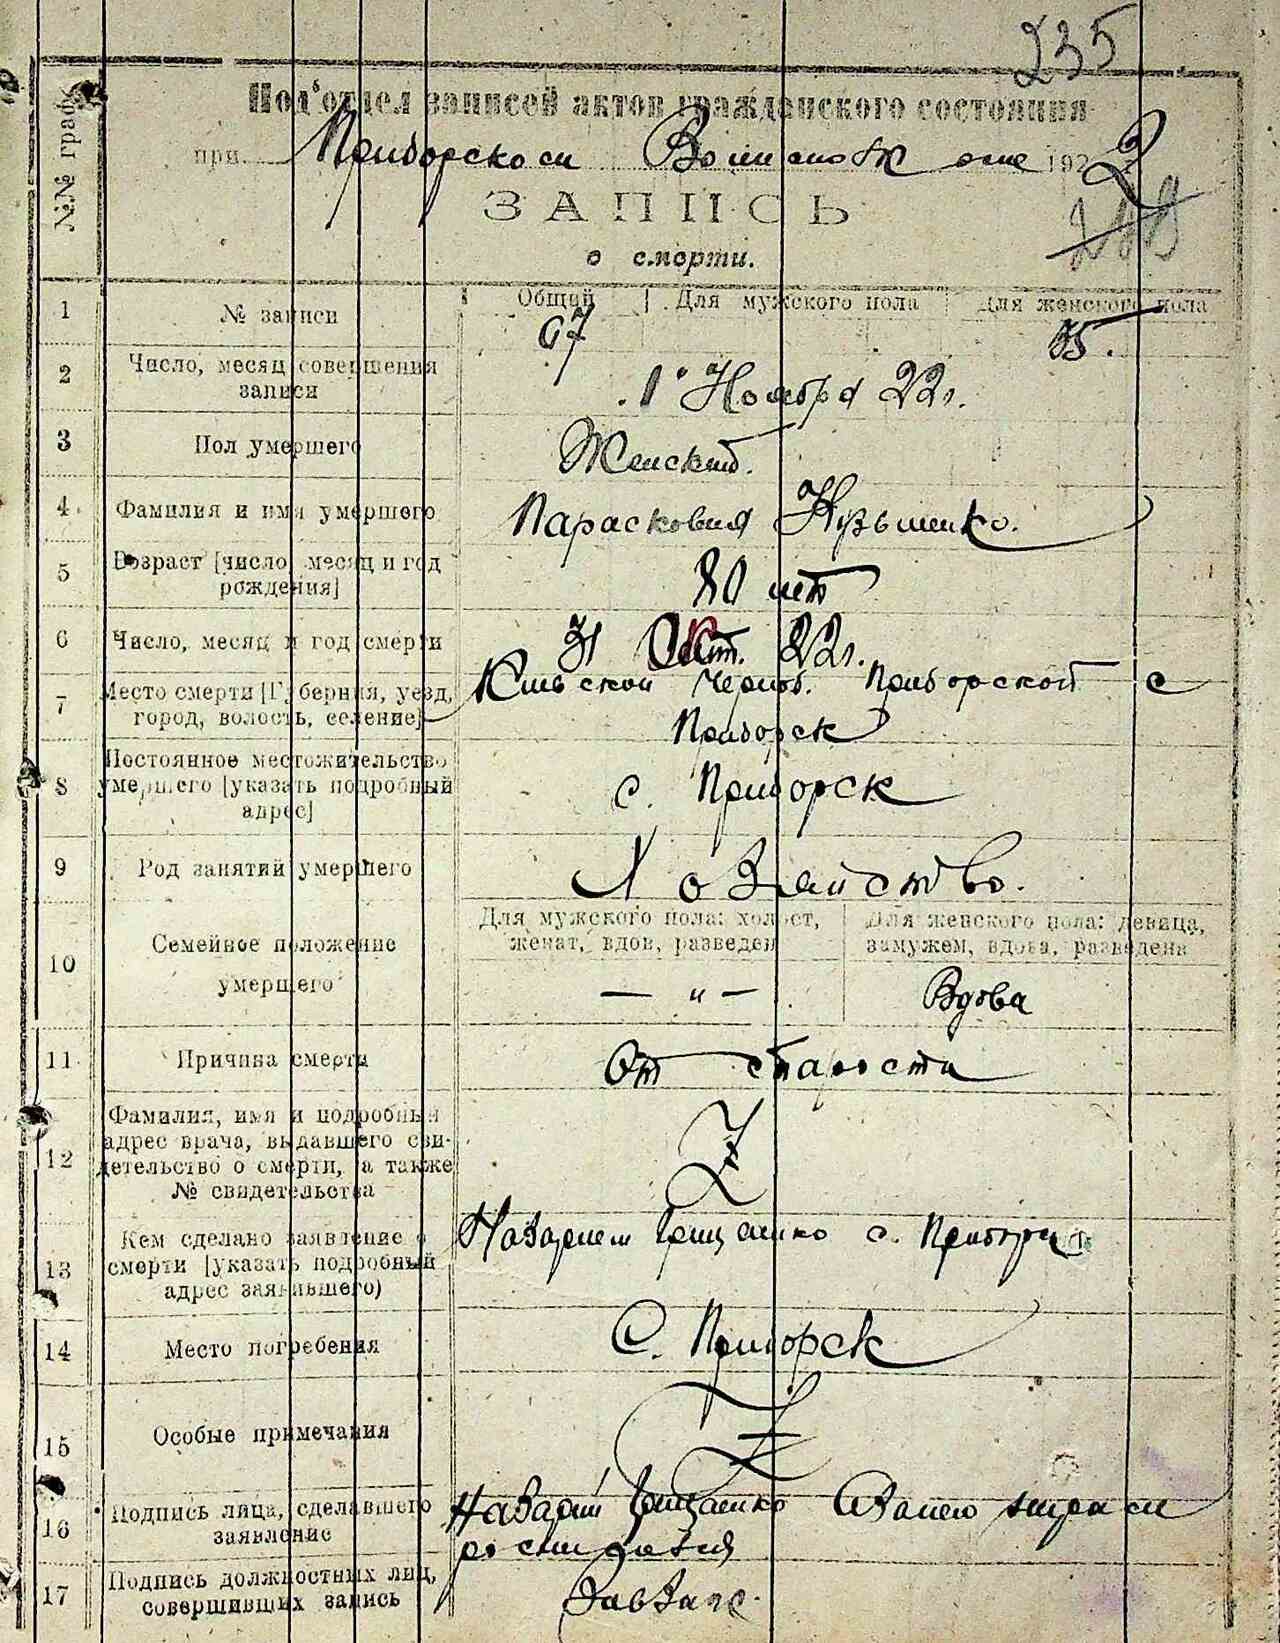 235
№№ граф.
Под'отдел записей актов гражданского состояния
при Приборском 192 2
ЗАПИСЬ
о смерти.
1 № записи Общий Для мужского пола Для женского пола
67 35.
2 Число, месяц совершения
записи
1 Ноября 22 г.
3 Пол умершего Женский.
4 Фамилия и имя умершего Парасковия Кузьменко.
5 Возраст [число, месяц и год
рождения]
80 лет
6 Число, месяц и год смерти 31 Окт. 22 г.
7 Место смерти [Губерния, уезд,
город, волость, селение]
Киевской Черноб. Приборской с
Приборск
8 Постоянное местожительство
умершего [указать подробный
адрес]
с. Приборск
9 Род занятий умершего Хозайство.
10 Семейное положение
умершего
Для мужского пола: холост,
женат, вдов, разведен
Для женского пола: девица,
замужем, вдова, разведена
— „ — Вдова
11 Причина смерти От старости
12 Фамилия, имя и подробный
адрес врача, выдавшего сви-
детельство о смерти, а также
№ свидетельства
13 Кем сделано заявление о
смерти [указать подробный
адрес заявившего)
Назарием Грищенко с.
14 Место погребения С. Приборск
15 Особые примечания
16 Подпись лица, сделавшего
заявление
Назарий Грищенко
17 Подпись должностных лиц,
совершивших запись
ЗавЗагс.